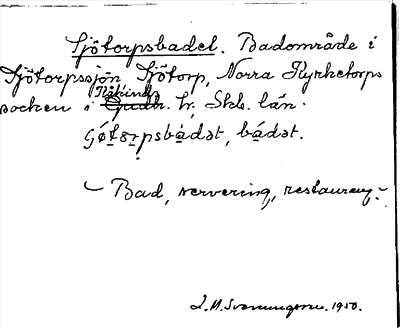 Sjötorpsbadet. Badområde i
Sjötorpssjön, Sjötorp, Norra Kyrketorps
Kåkinds
socken i Gudh. hr, Skb. län.
ʃǿtɔrpsbàdət, bádət.
– Bad, servering, restaurang –
J. H. Svenungsson. 1950.